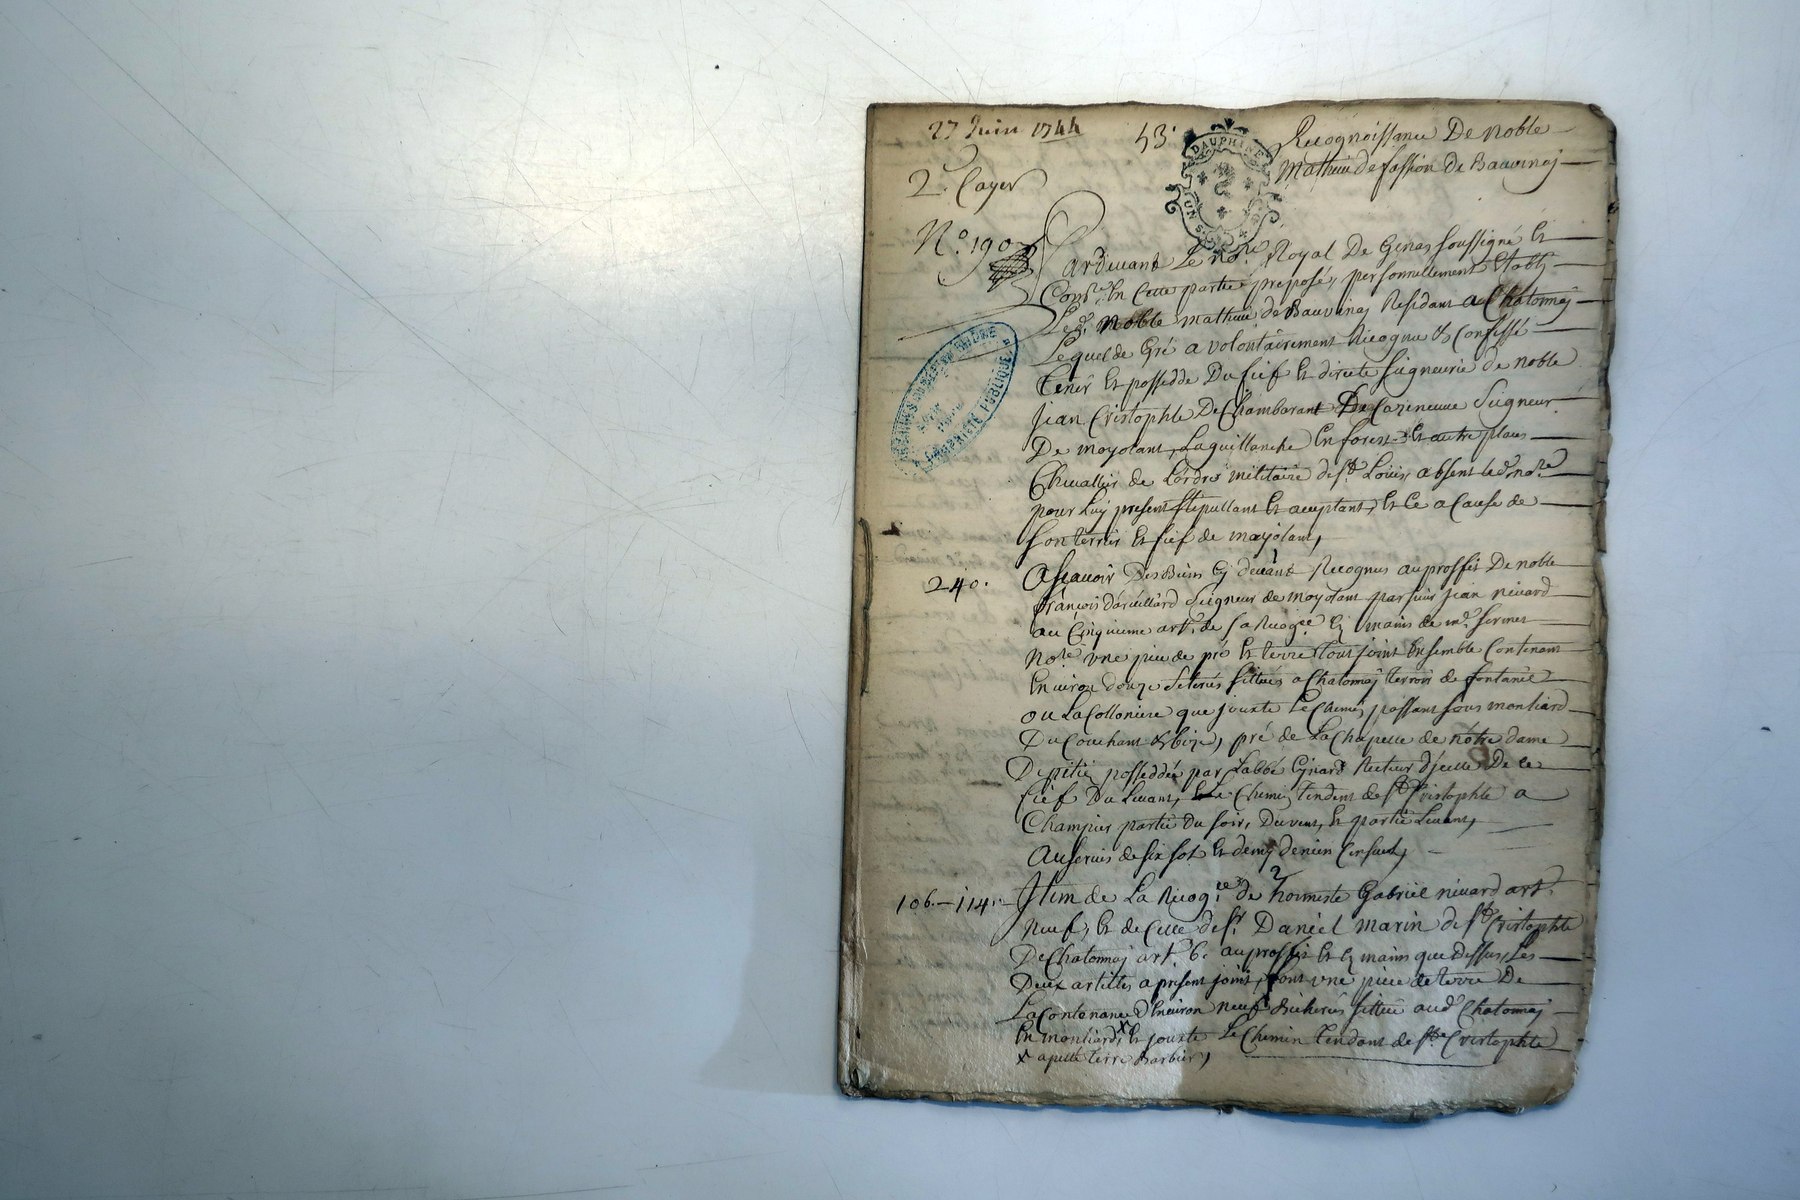 27 Juin 1744
53.
DAUPHINE
UN S.
Recognoissance De noble
Mathieu de fassion de Bauvinej
2e. Cayer
N.o 190
Pardevant Le no.re Royal De Genas soussigné Et
Com.re En Cette partie preposé, personnellement Etablj
Led. Noble mathieu de Bauvinej Residant a Chatonnaj
Lequel de Gré a volontairement Recognu Et Confessé
tenir Et possedde Du fief Et directe seigneurie de noble
Jean Cristophle De Chambarant De Cazeneuve Seigneur
De moyolant, Laguillanche En forest Et autre places
Chevallier de Lordre militaire de st. Louis, absent led. no.re
pour Luy present stepullant Et acceptant, Et Ce a Cause de
son terrier Et fief de mayolant,
PUBLIQUE
240.
Asçavoir Des Biens Cy devant Recognus au proffit De noble
françois Seigneur de Moyolant par sieur jean nivard
au Cinquieme art. de sa Recog.ce Ez mains de m.e
No.re une piece de pré Et terre tout joint Ensemble Contenant
Environ douze seterés sittués a Chatonnaj terroir de fontanil
ou La Colloniere que jouxte Le Chemin passant sous montiard
Du Couchant & bize, pré de La Chapelle de nôtre dame
De pitié posseddée par Labbé Recteur D'jcelle De Ce
fief Du Levant, Et Le Chemin tendent de st. Cristophle a
Champier partie du soir, Du vent, Et partie Levant,
Au servis de six sol Et demy denier Censuel,
106.-114.
Jtem de La Recog.ce de Gabriel nivard art.
Neuf, Et de Celle de sr. Daniel Marin de st. Cristophle
De Chatonnaj art. 6. au proffit Et Ez mains que dessus, Les
Deux articles a present joint, font une piece de terre De
La Contenance D'Environ neuf Bicherés sittué aud. Chatonnaj
En montiard, x Et jouxte Le Chemin tendant de st. Cristophle
x apellé terre Barbier,